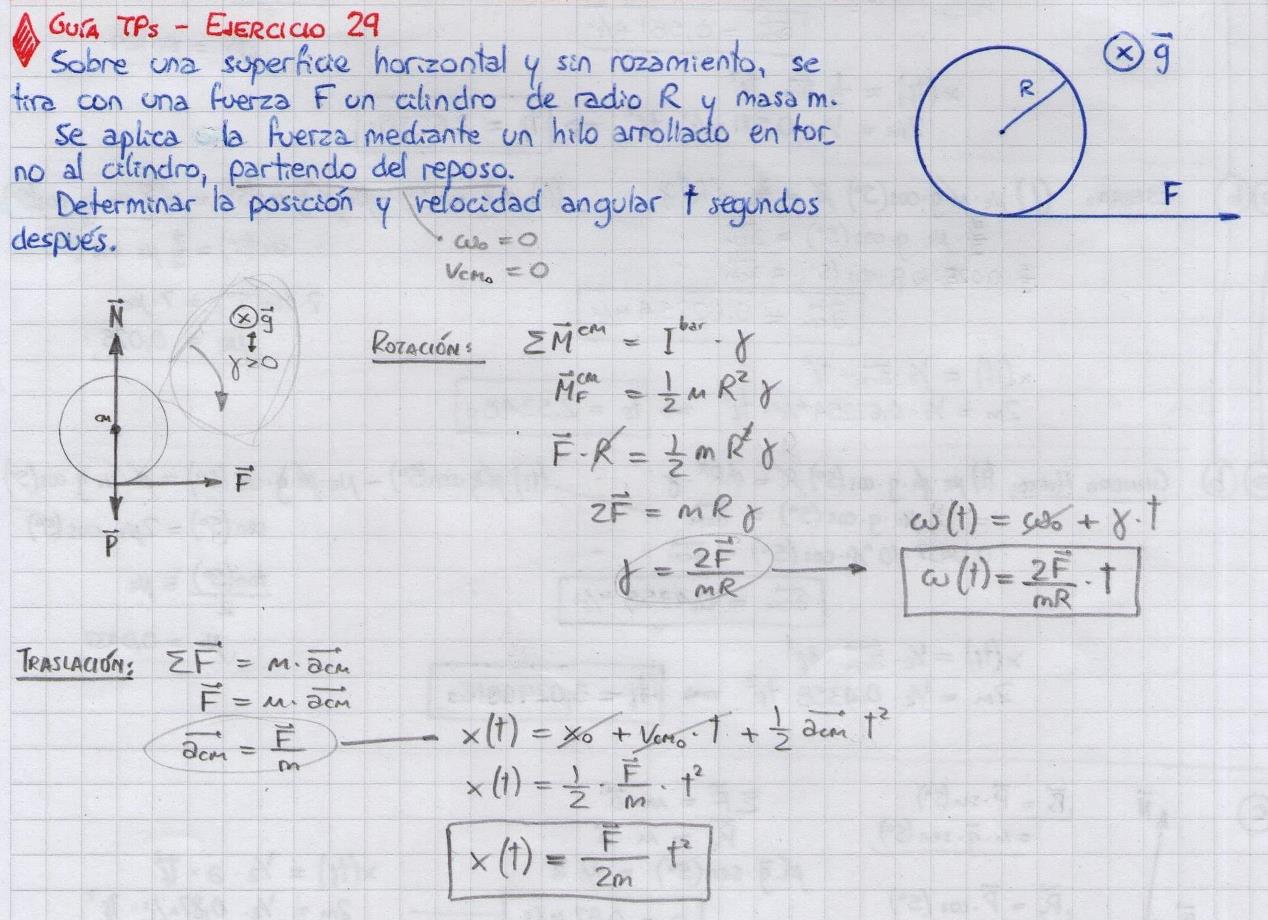 GUÍA TPs - EJERCICIO 29
Sobre una superficie horizontal y sin rozamiento, se
tira con una fuerza F un cilindro de radio R y masa m.
Se aplica la fuerza mediante un hilo arrollado en tor_
no al cilindro, partiendo del reposo.
Determinar la posición y velocidad angular t segundos
después.
ω₀ = 0
Vcm₀ = 0
R
ⓧ g⃗
F
N⃗
ⓧ g⃗
↕
γ>0
cm
F⃗
P⃗
ROTACIÓN:
ΣM⃗ᶜᵐ = Iᵇᵃʳ · γ
M⃗_F^cm = 1/2 m R² γ
F⃗ · R = 1/2 m R² γ
2F⃗ = m R γ
γ = 2F⃗/mR
ω(t) = ω₀ + γ · t
ω(t) = 2F⃗/mR · t
TRASLACIÓN:
ΣF⃗ = m · a⃗cm
F⃗ = m · a⃗cm
a⃗cm = F⃗/m
x(t) = x₀ + Vcm₀ · t + 1/2 a⃗cm t²
x(t) = 1/2 · F⃗/m · t²
x(t) = F⃗/2m t²